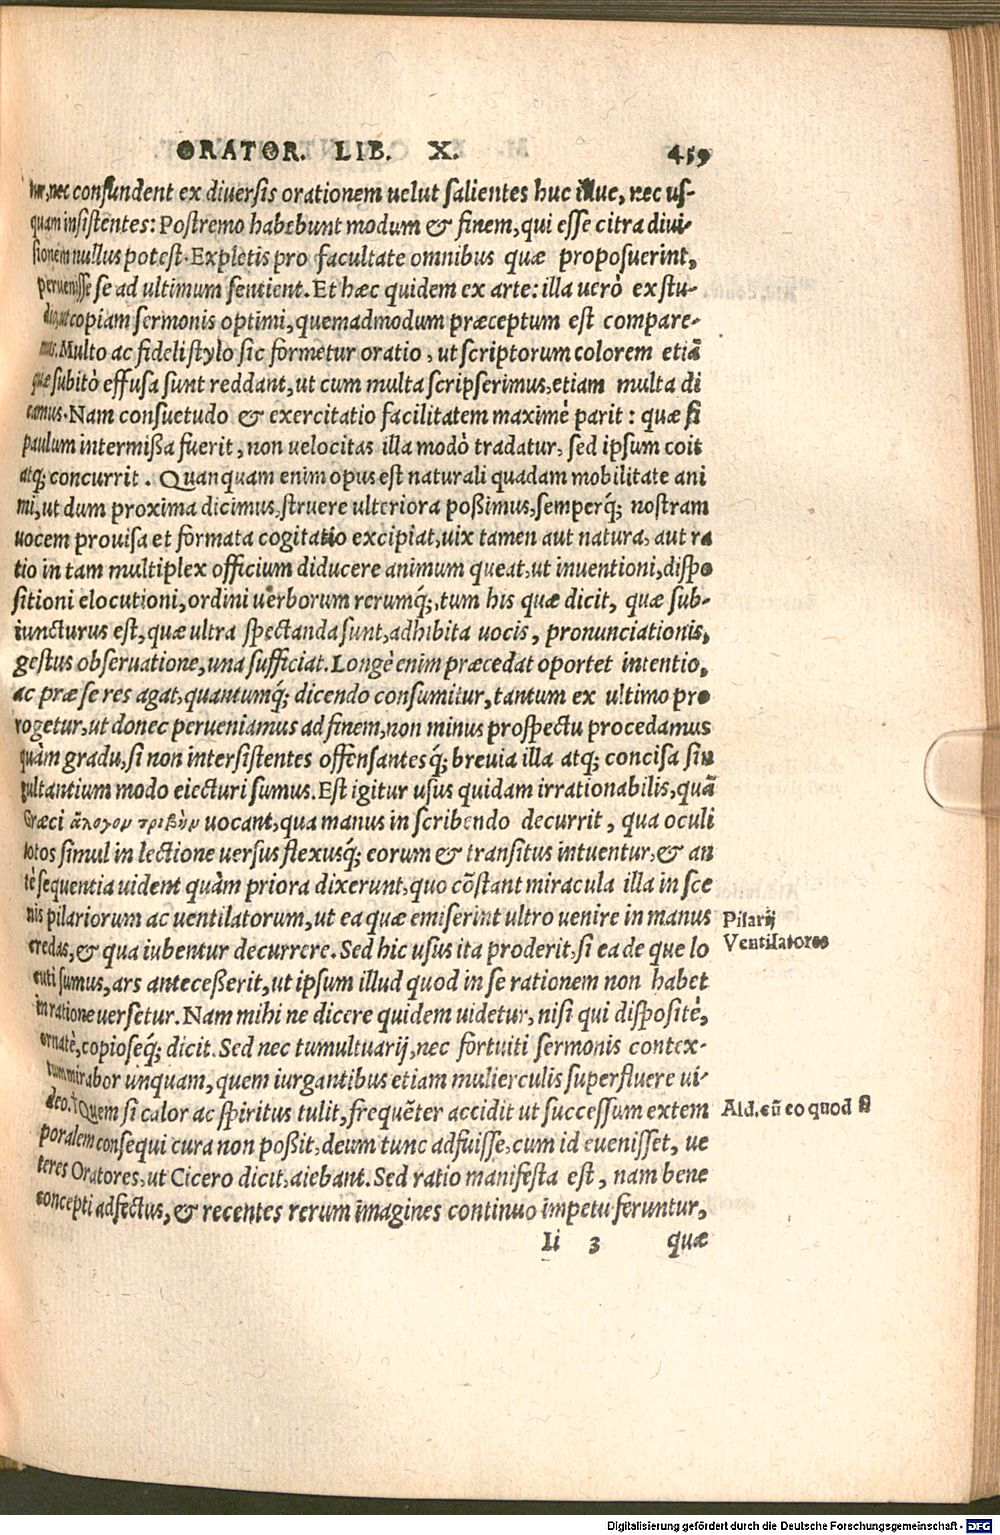 ORATOR. LIB. X. 459
tur, nec confundent ex diuersis orationem uelut salientes huc illuc, nec us-
quam insistentes: Postremo habebunt modum & finem, qui esse citra diui-
sionem nullus potest. Expletis pro facultate omnibus quæ proposuerint,
peruenisse se ad ultimum sentient. Et hæc quidem ex arte: illa uerò ex stu-
dio, ut copiam sermonis optimi, quemadmodum præceptum est compare-
mus. Multo ac fideli stylo sic formetur oratio, ut scriptorum colorem etiã
quæ subitò effusa sunt reddant, ut cum multa scripserimus, etiam multa di
camus. Nam consuetudo & exercitatio facilitatem maximè parit: quæ si
paulum intermißa fuerit, non uelocitas illa modò tradatur, sed ipsum coit
atq; concurrit. Quanquam enim opus est naturali quadam mobilitate ani
mi, ut dum proxima dicimus, struere ulteriora poßimus, semperq́; nostram
uocem prouisa et formata cogitatio excipiat, uix tamen aut natura, aut ra
tio in tam multiplex officium diducere animum queat, ut inuentioni, dispo
sitioni elocutioni, ordini uerborum rerumq́;, tum his quæ dicit, quæ sub-
iuncturus est, quæ ultra spectanda sunt, adhibita uocis, pronunciationis,
gestus obseruatione, una sufficiat. Longè enim præcedat oportet intentio,
ac præ se res agat, quantumq́; dicendo consumitur, tantum ex ultimo pro
rogetur, ut donec perueniamus ad finem, non minus prospectu procedamus
quàm gradu, si non intersistentes offensantesq́; breuia illa atq; concisa sin
gultantium modo eiecturi sumus. Est igitur usus quidam irrationabilis, quã
Græci ἄλογον τριβὴν uocant, qua manus in scribendo decurrit, qua oculi
totos simul in lectione uersus flexusq́; eorum & transitus intuentur, & an
tè sequentia uident quàm priora dixerunt, quo cõstant miracula illa in sce
nis pilariorum ac uentilatorum, ut ea quæ emiserint ultro uenire in manus
Pilarij
credas, & qua iubentur decurrere. Sed hic usus ita proderit, si ea de que lo
Ventilatores
cuti sumus, ars anteceßerit, ut ipsum illud quod in se rationem non habet
in ratione uersetur. Nam mihi ne dicere quidem uidetur, nisi qui dispositè,
ornatè, copioseq́; dicit. Sed nec tumultuarij, nec fortuiti sermonis contex-
tum mirabor unquam, quem iurgantibus etiam mulierculis superfluere ui-
deo. † Quem si calor ac spiritus tulit, frequẽter accidit ut successum extem
Ald. cũ eo quod si
poralem consequi cura non poßit, deum tunc adfuisse, cum id euenisset, ue
teres Oratores, ut Cicero dicit, aiebant. Sed ratio manifesta est, nam bene
concepti adfectus, & recentes rerum imagines continuo impetu feruntur,
Ii 3 quæ
Digitalisierung gefördert durch die Deutsche Forschungsgemeinschaft - DFG